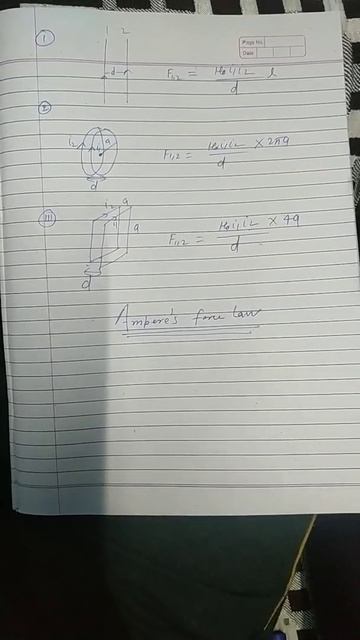 I 1 2
Page No.
Date
d
F₁,₂ = μ₀i₁i₂ / d l
II
i₂ i₁ a
d
F₁,₂ = μ₀i₁i₂ / d × 2πa
III
i₂ a
i₁ a
F₁,₂ = μ₀i₁i₂ / d × 4a
d
Ampere's force law